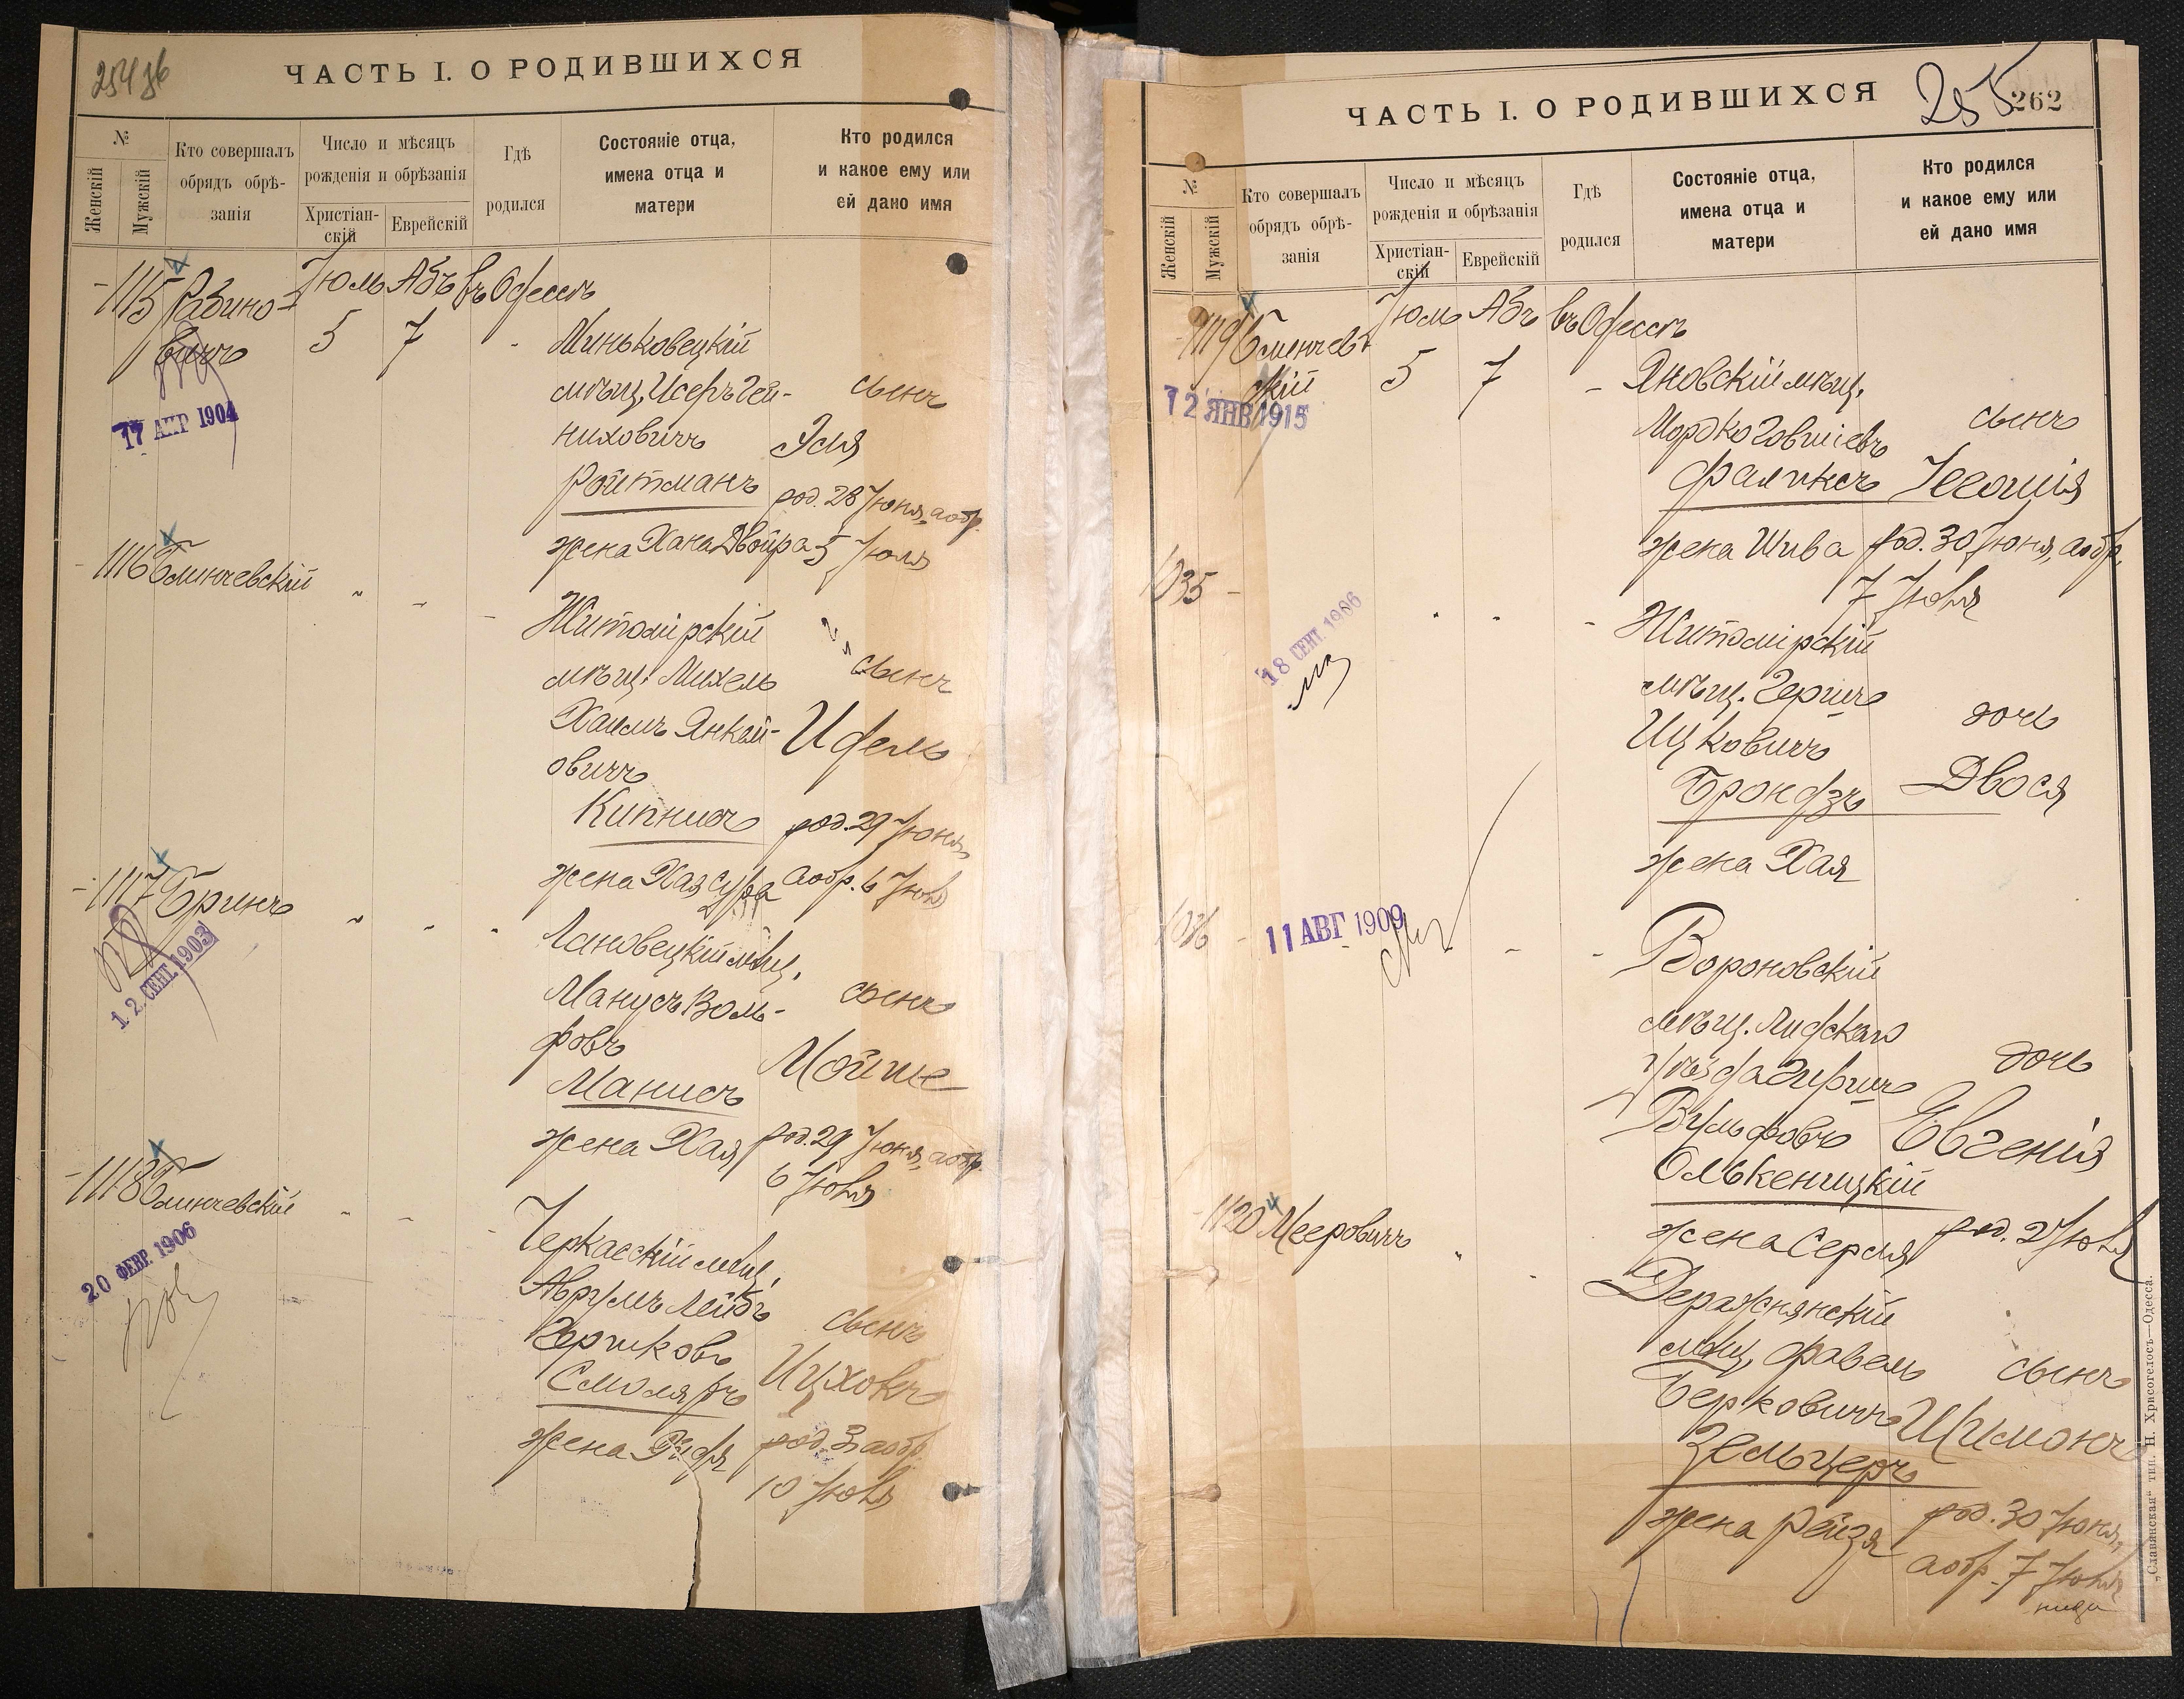 254 об
ЧАСТЬ I. О РОДИВШИХСЯ
№
Женскій
Мужскій
Кто совершалъ
обрядъ обрѣ-
занія
Число и мѣсяцъ
рожденія и обрѣзанія
Христіан-
скій
Еврейскій
Гдѣ
родился
Состояніе отца,
имена отца и
матери
Кто родился
и какое ему или
ей дано имя
1115 Рабино- Іюль Абъ въ Одессѣ
вичъ 5 7
Миньковецкій
мѣщ. Исеръ Гей- сынъ
ниховичъ Эля
Ройтманъ род. 28 Іюня, а обр.
жена Хана Двойра 5 Іюля
17 АПР 1904
1116 Блинчевскій
Житомірскій
мѣщ. Михель сынъ
Хаимъ Янкел-
овичъ Идель
Кипнисъ род. 29 Іюня
жена Хая Сура а обр. 6 Іюля
1117 Бринъ
12 СЕНТ. 1903
Лановецкій мѣщ.
Манусъ Воль- сынъ
фовъ Мойше
Манисъ
жена Хая род. 29 Іюня, а обр.
6 Іюля
1118 Блинчевскій
20 ФЕВР. 1906
Черкасскій мѣщ.
Аврумъ Лейбъ сынъ
Гершковъ Ицхокъ
Смоляръ
жена род. 3 а обр.
10 Іюля
ЧАСТЬ I. О РОДИВШИХСЯ
255 262
№
Женскій
Мужскій
Кто совершалъ
обрядъ обрѣ-
занія
Число и мѣсяцъ
рожденія и обрѣзанія
Христіан-
скій
Еврейскій
Гдѣ
родился
Состояніе отца,
имена отца и
матери
Кто родился
и какое ему или
ей дано имя
1119 Блинчев- Іюль Абъ въ Одессѣ
скій 5 7
12 ЯНВ 1915
Яновскій мѣщ.
Мордко Говшіевъ сынъ
Фаликъ Іегошія
жена Шива род. 30 Іюня, а обр.
7 Іюля
1035
18 СЕНТ. 1906
Житомірскій
мѣщ. Гершъ дочь
Ицковичъ
Бронфэъ Двося
жена Хая
1036
11 АВГ 1909
Вороновскій
мѣщ. Лидскаго
уѣзда Гиршъ дочь
Вульфовъ Евгенія
Олькеницкій
жена Серля род. 2 Іюля
1120 Мееровичъ
Деражнянскій
мѣщ. Фавель сынъ
Берковичъ Шимонъ
Зельцеръ
жена Рейзя род. 30 Іюня,
а обр. 7 Іюля
„Славянская" тип. Н. Хрисогелосъ—Одесса.